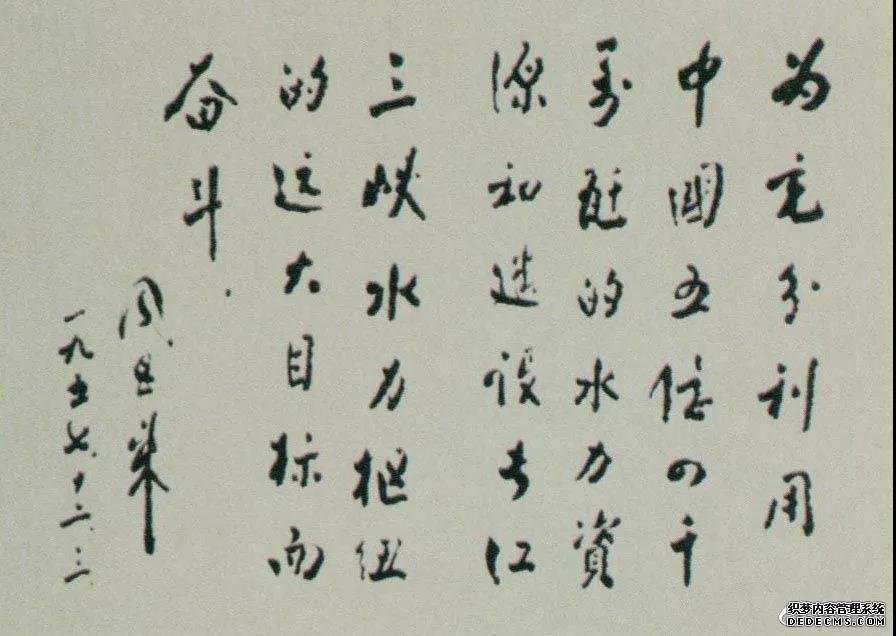 为充分利用
中國五億四千
萬瓩的水力資
源和建设长江
三峡水力枢纽
的远大目标而
奋斗.
周恩来
一九五七.十二.三.
织梦内容管理系统
DEDECMS.COM